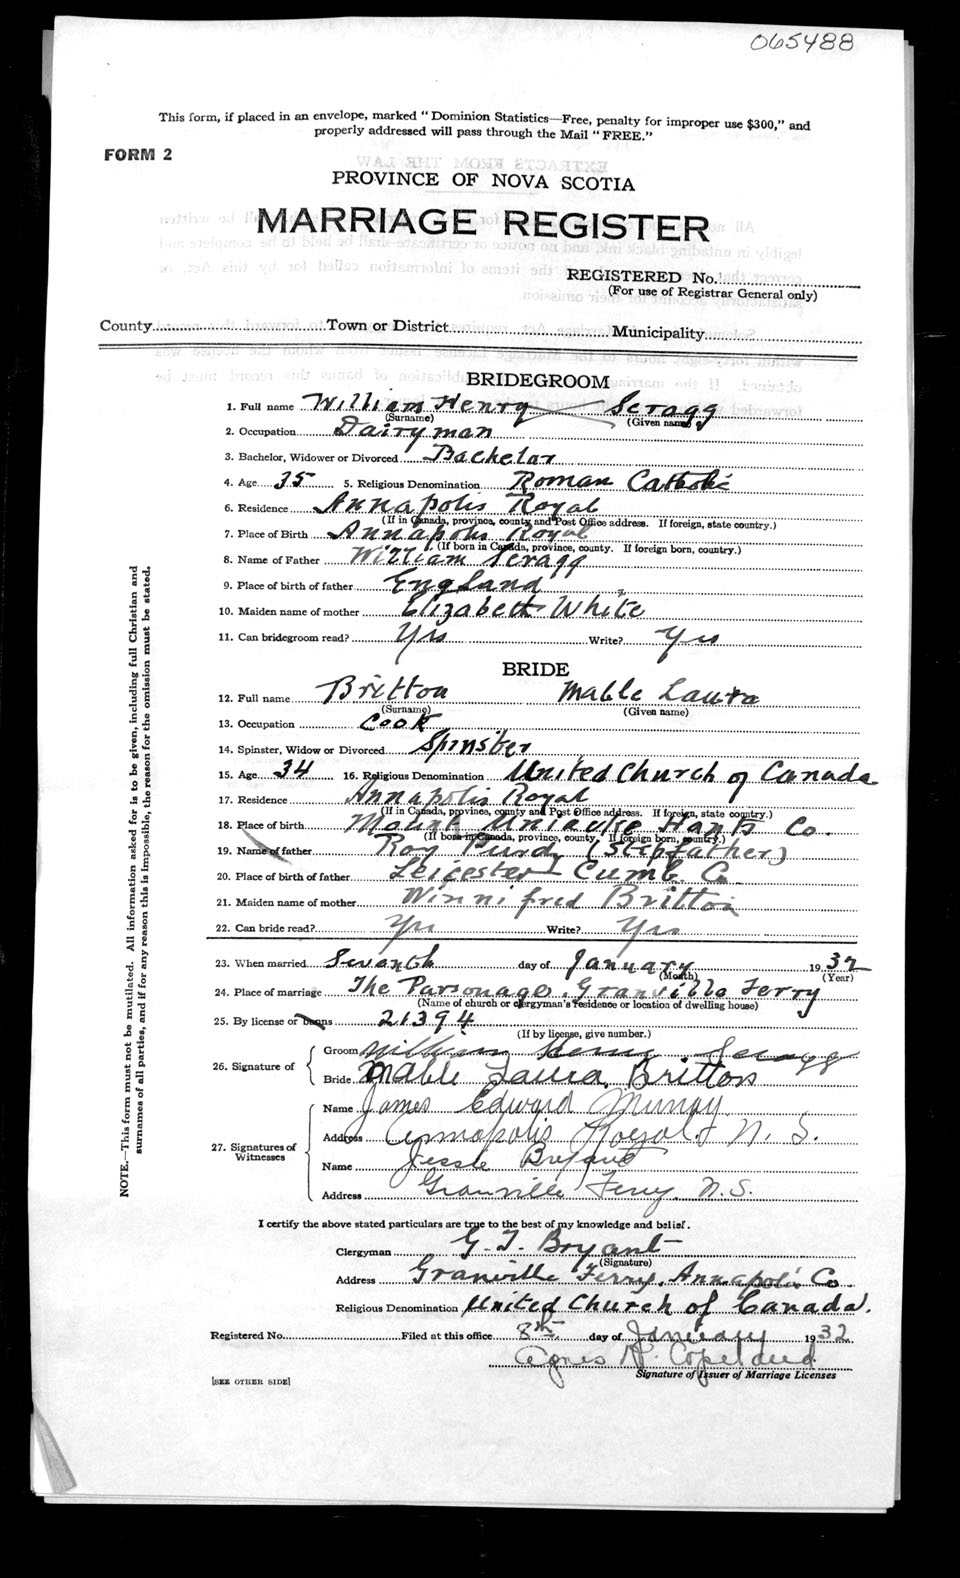 065488
This form, if placed in an envelope, marked "Dominion Statistics—Free, penalty for improper use $300," and
properly addressed will pass through the Mail "FREE."
FORM 2
PROVINCE OF NOVA SCOTIA
MARRIAGE REGISTER
REGISTERED No.
(For use of Registrar General only)
County Town or District Municipality
BRIDEGROOM
1. Full name William Henry Scragg
(Surname) (Given name)
2. Occupation Dairyman
3. Bachelor, Widower or Divorced Bachelor
4. Age 35 5. Religious Denomination Roman Catholic
6. Residence Annapolis Royal
(If in Canada, province, county and Post Office address. If foreign, state country.)
7. Place of Birth Annapolis Royal
(If born in Canada, province, county. If foreign born, country.)
8. Name of Father William Scragg
9. Place of birth of father England
10. Maiden name of mother Elizabeth White
11. Can bridegroom read? Yes Write? Yes
BRIDE
12. Full name Britton Mable Laura
(Surname) (Given name)
13. Occupation Cook
14. Spinster, Widow or Divorced Spinster
15. Age 34 16. Religious Denomination United Church of Canada
17. Residence Annapolis Royal
(If in Canada, province, county and Post Office address. If foreign, state country.)
18. Place of birth Mount Uniacke Hants Co.
(If born in Canada, province, county. If foreign born, country.)
19. Name of father Roy Purdy (Stepfather)
20. Place of birth of father Leicester Cumb Co
21. Maiden name of mother Winnifred Britton
22. Can bride read? Yes Write? Yes
23. When married Seventh day of January 1932
(Month) (Year)
24. Place of marriage The Parsonage, Granville Ferry
(Name of church or clergyman's residence or location of dwelling house)
25. By license or banns 21394
(If by license, give number.)
26. Signature of
Groom William Henry Scragg
Bride Mable Laura Britton
27. Signatures of Witnesses
Name James Edward Murray
Address Annapolis Royal N. S.
Name Jessie Bryant
Address Granville Ferry N.S.
I certify the above stated particulars are true to the best of my knowledge and belief.
Clergyman G. T. Bryant
(Signature)
Address Granville Ferry, Annapolis Co.
Religious Denomination United Church of Canada.
Registered No. Filed at this office 8th day of January 1932
Agnes H. Copeland
Signature of Issuer of Marriage Licenses
[SEE OTHER SIDE]
NOTE.—This form must not be mutilated. All information asked for is to be given, including full Christian and
surnames of all parties, and if for any reason this is impossible, the reason for the omission must be stated.